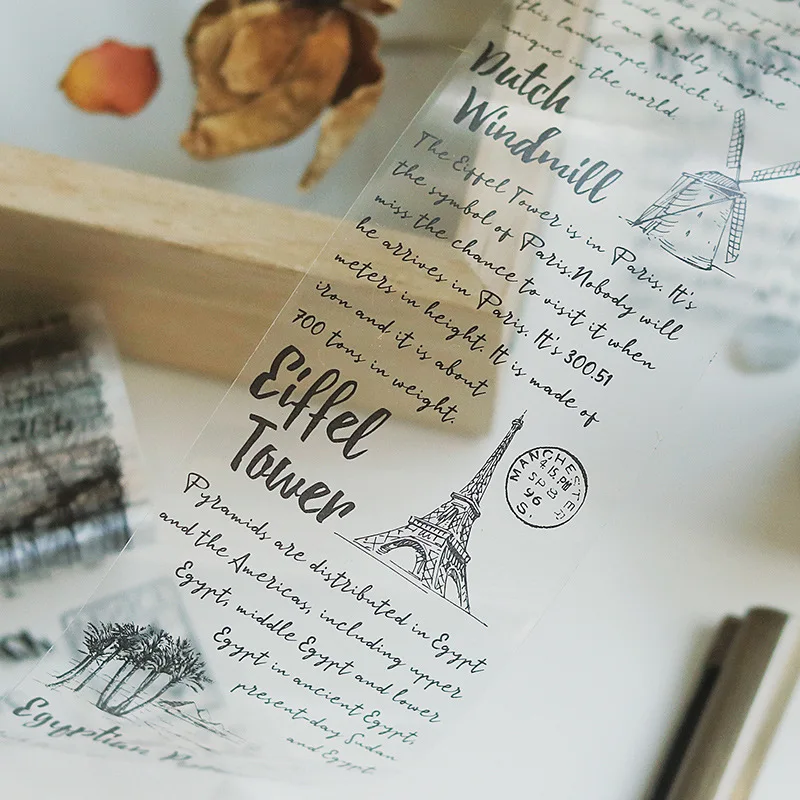 this landscape, which is
unique in the world.
Dutch
Windmill
The Eiffel Tower is in Paris. It's
the symbol of Paris.Nobody will
miss the chance to visit it when
he arrives in Paris. It's 300.51
meters in height. It is made of
iron and it is about
700 tons in weight.
Eiffel
Tower
MANCHESTER
4.15.PM
SP 8
96
S.
Pyramids are distributed in Egypt
and the Americas, including upper
Egypt, middle Egypt and lower
Egypt in ancient Egypt,
present-day Sudan
and Egypt.
Egyptian